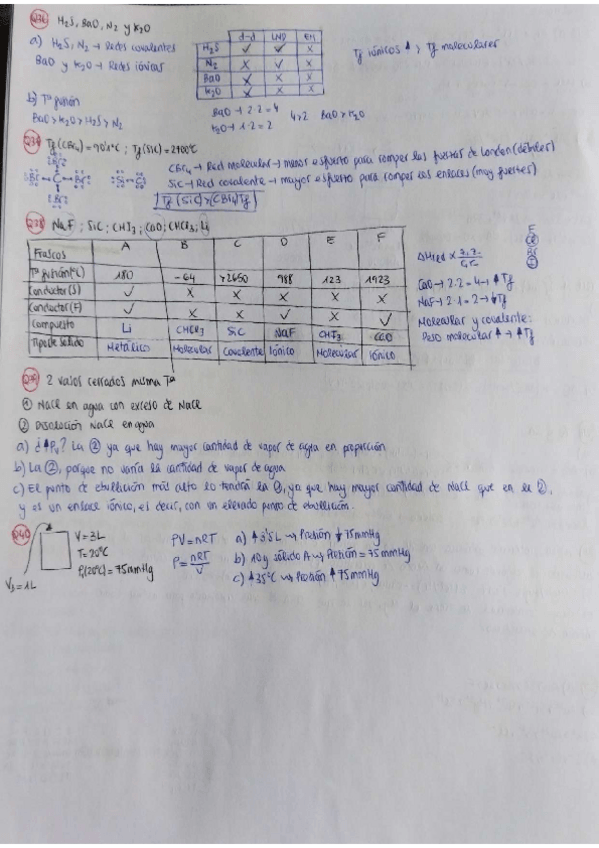 Q36 H₂S, BaO, N₂ y K₂O
a) H₂S, N₂ → Redes covalentes
BaO y K₂O → Redes iónicas
d-d LND EH
H₂S ✓ ✓ X
N₂ X ✓ X
BaO X X X
K₂O X X X
Tf iónicos ↑ > Tf moleculares
b) Tª fusión
BaO > K₂O > H₂S > N₂
BaO → 2·2 = 4
K₂O → 1·2 = 2
4>2 BaO > K₂O
Tf (CBr₄) = 90'1°C ; Tf (SiC) = 2700°C
CBr₄ → Red molecular → menos esfuerzo para romper las fuerzas de London (débiles)
SiC → Red covalente → mayor esfuerzo para romper los enlaces (muy fuertes)
Tf (SiC) > (CBr₄) Tf
Q38 NaF ; SiC ; CHI₃ ; CaO ; CHCl₃ ; Li
Frascos A B C D E F
Tª fusión (°C) 180 -64 >2650 988 123 1923
Conductor (S) ✓ X X X X X
Conductor (F) ✓ X X ✓ X ✓
Compuesto Li CHCl₃ SiC NaF CHI₃ CaO
Tipo de sólido Metálico Molecular Covalente Iónico Molecular Iónico
F
Br
I
CaO → 2·2 = 4 → ↑Tf
NaF → 2·1 = 2 → ↓Tf
Molecular y covalente:
Peso molecular ↑ → ↑ Tf
2 vasos cerrados misma Tª
① NaCl en agua con exceso de NaCl
② Disolución NaCl en agua
a) ¿↑Pv? La ② ya que hay mayor cantidad de vapor de agua en proporción
b) La ②, porque no varía la cantidad de vapor de agua
c) El punto de ebullición más alto lo tendrá la ①, ya que hay mayor cantidad de NaCl que en el ②,
y es un enlace iónico, es decir, con un elevado punto de ebullición.
Q40
V = 3L
T = 20°C
Pv(20°C) = 75mmHg
V₃ = 1L
PV = nRT
P = nRT/V
a) ↑3'5L → Presión ↓ 75mmHg
b) 10g sólido A → Presión = 75mmHg
c) ↑35°C → Presión ↑ 75mmHg